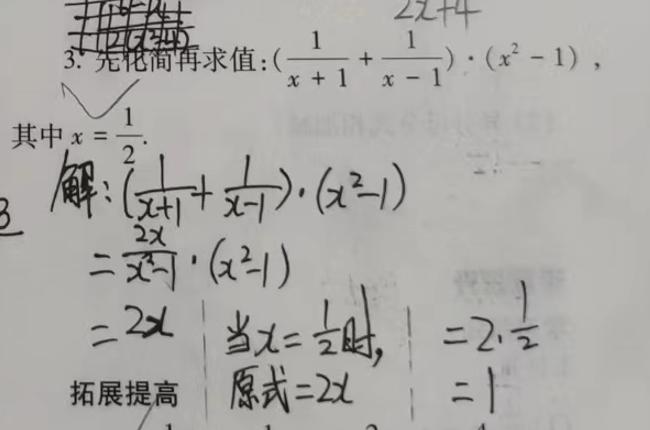 2x+4
3. 先化简再求值:(1/(x+1) + 1/(x-1))·(x²-1),
其中 x = 1/2.
解:(1/(x+1) + 1/(x-1))·(x²-1)
= 2x/(x²-1)·(x²-1)
= 2x
当x=1/2时,
原式=2x
=2·1/2
=1
拓展提高